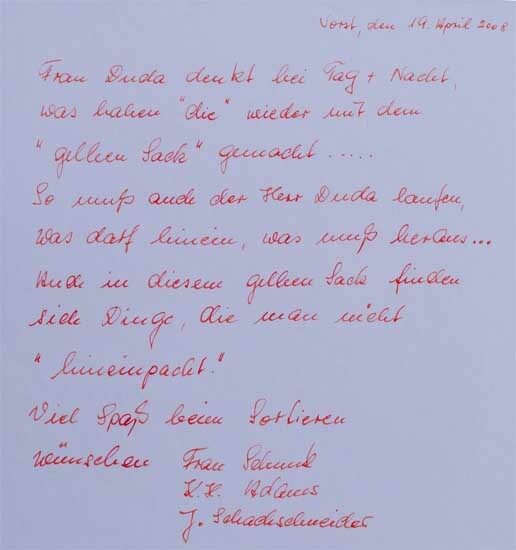 Vorst, den 19. April 2008
Frau Duda denkt bei Tag + Nacht,
was haben "die" wieder mit dem
"gelben Sack" gemacht.....
So muß auch der Herr Duda laufen,
was darf hinein, was muß heraus...
Auch in diesem gelben Sack finden
sich Dinge, die man nicht
"hineinpackt."
Viel Spaß beim Sortieren
wünschen Frau Schunk
K.H. Adams
J. Schachschneider